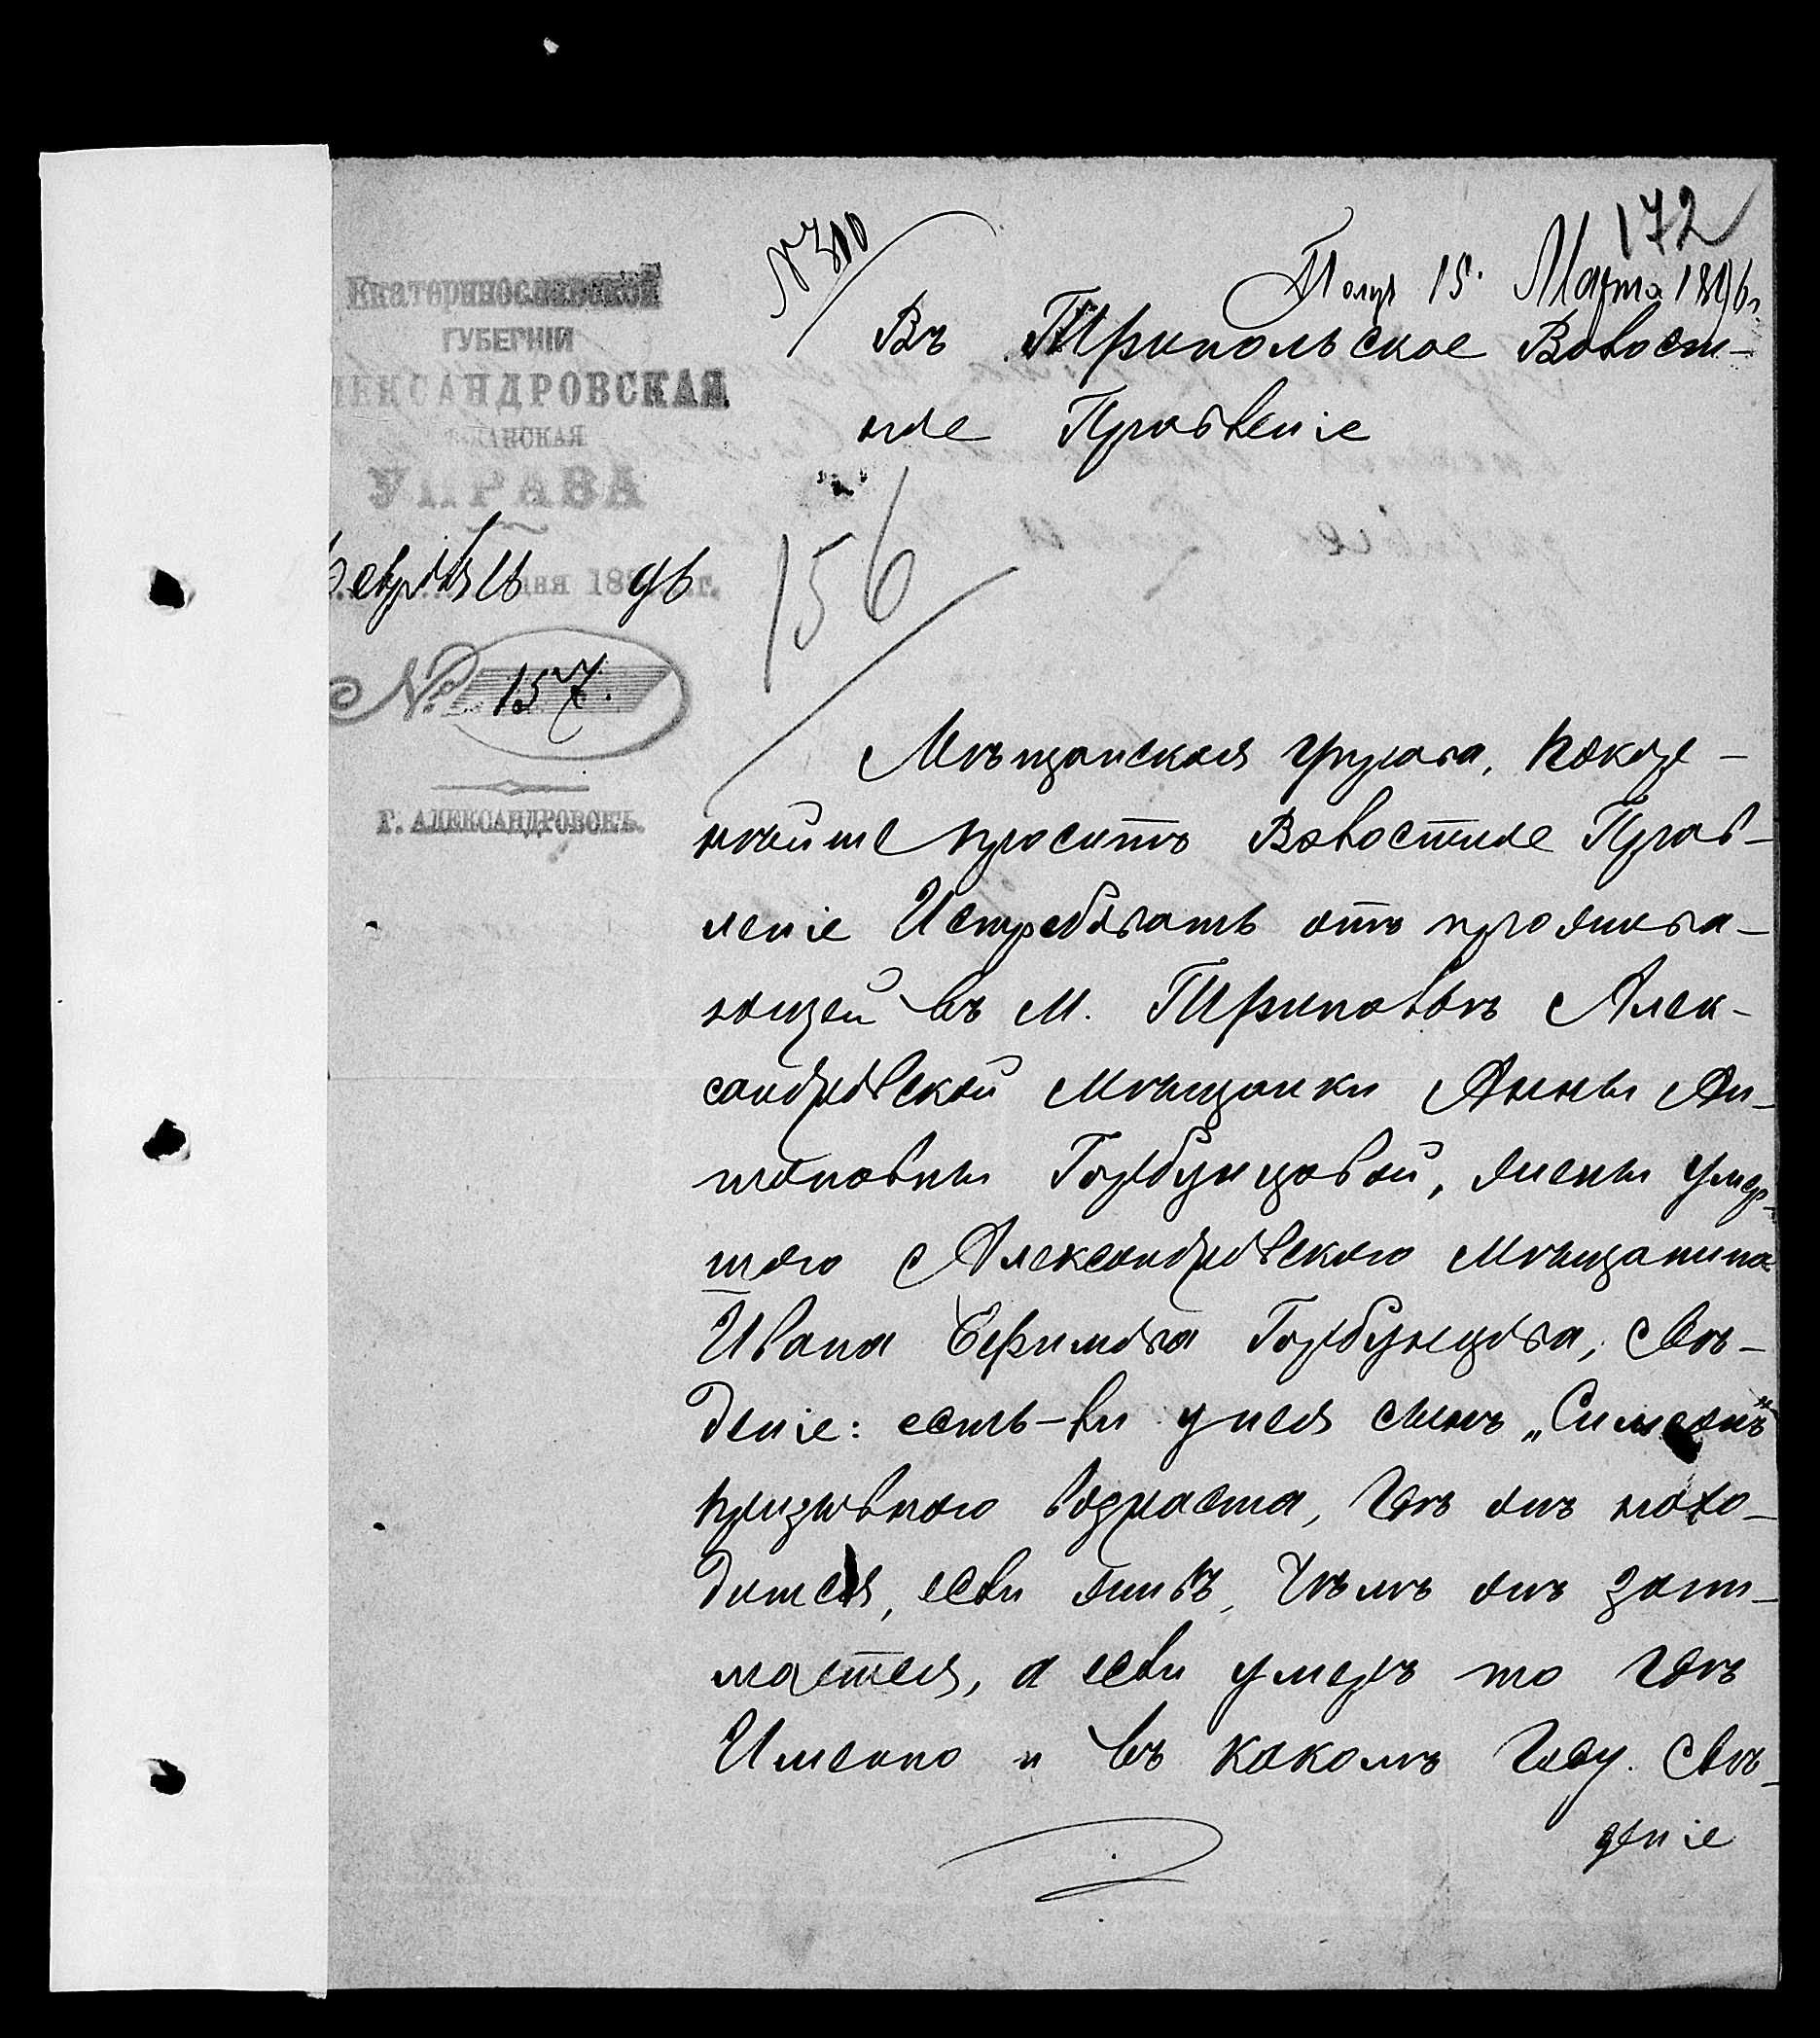 172
№ 300
Получ 15 Марта 1896 г.
Екатеринославской
ГУБЕРНІИ
ЛЕКСАНДРОВСКАЯ
ЩАНСКАЯ
УПРАВА
евраля дня 1896 г.
№ 157.
Г. АЛЕКСАНДРОВСКЪ.
Въ Трипольское Волост-
ное Правленіе
156
Мѣщанская управа, покор-
нѣйше просить Волостное Прав-
леніе Истребовать отъ прожива-
ющей въ М. Триполѣ Алек-
сандровской мѣщанки Анны Ан-
тоновны Горбунцовой, жены умер-
шаго Александровского мѣщанина
Ивана Ефимова Горбунцова, свѣ-
деніе: есть-ли у нея сынъ „Симеонъ"
призывного возраста, гдѣ онъ нахо-
дится, если живъ, чѣмъ онъ зани-
мается, а если умеръ то гдѣ
Именно и въ какомъ году. Свѣ-
деніе